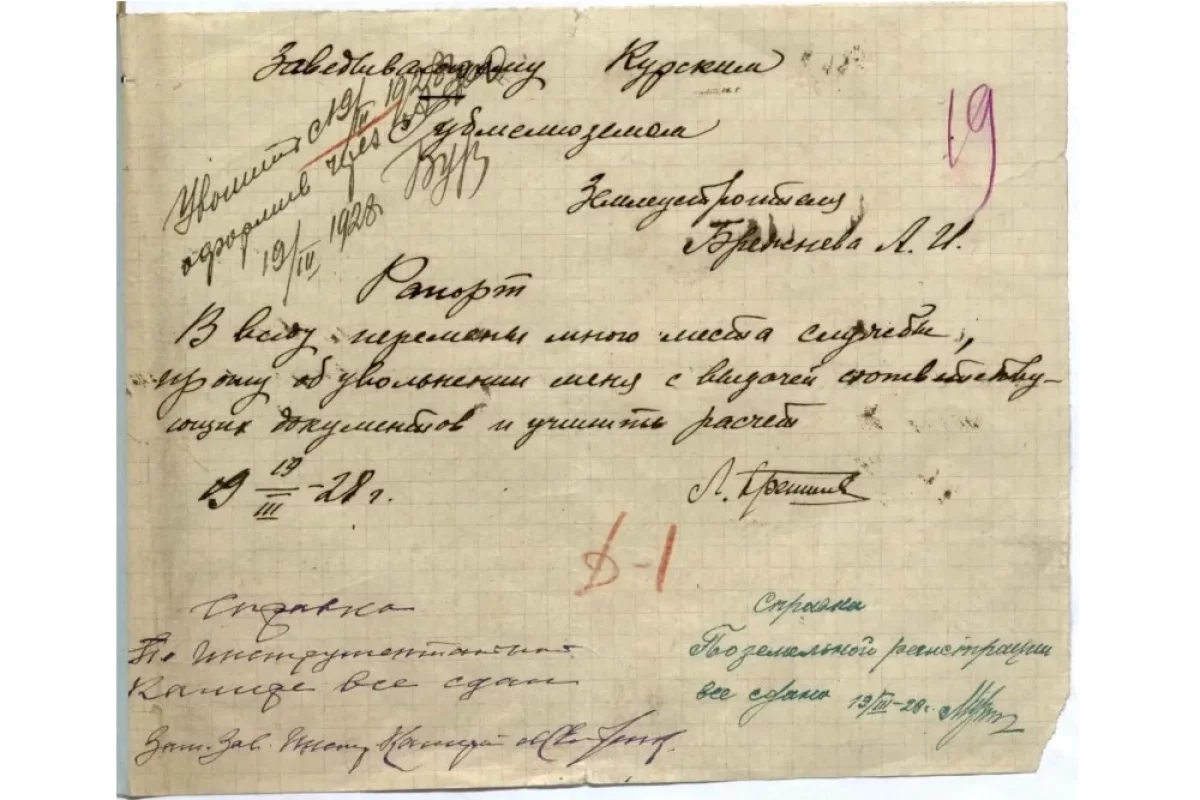 Заведывающему Курским
Губмелиоземом
19
Землеустроителя
Брежнева Л. И.
Уволить с 19/III 1928
оформив через
19/III 1928
Рапорт
В виду перемены мною места службы,
прошу об увольнении меня с выдачей соответству-
ющих документов и учинить расчет
19 19/III -28 г.
Л. Брежнев
Д-1
Справка
По инструментальной
Камере все сдал
Зам. Зав. Инстр. Камерой
Справка
Поземельной регистрации
все сдано 19/III-28г.